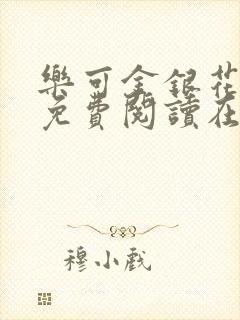 樂可金銀花
免費閱讀在
穆小戲